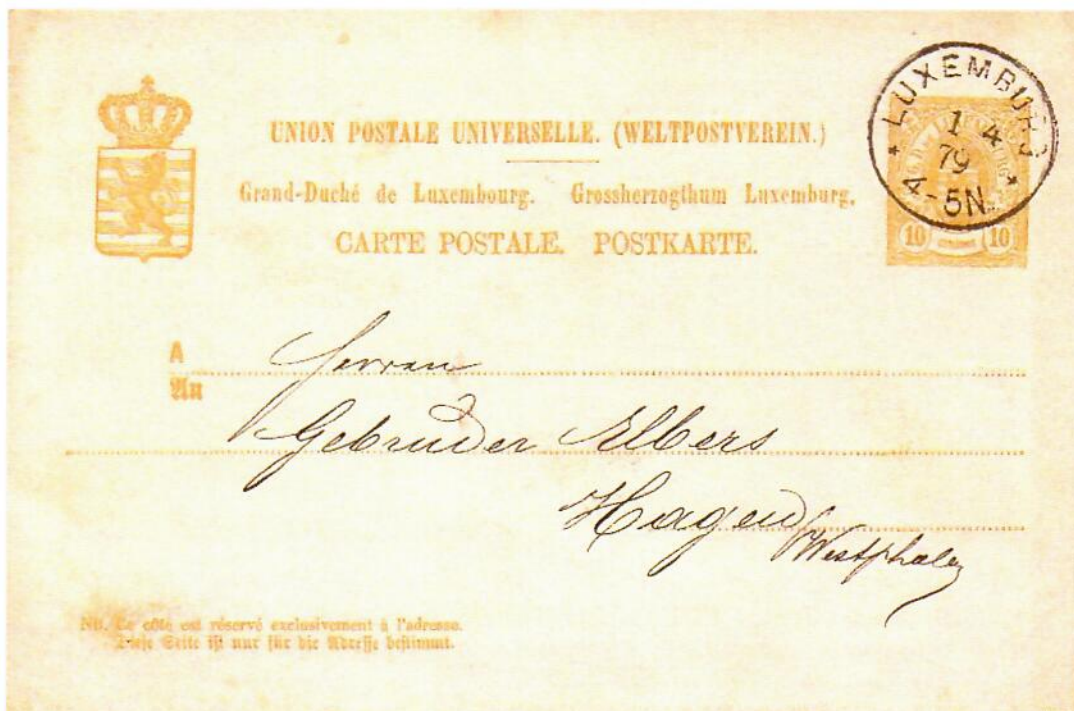 UNION POSTALE UNIVERSELLE. (WELTPOSTVEREIN.)
Grand-Duché de Luxembourg. Grossherzogthum Luxemburg.
CARTE POSTALE. POSTKARTE.
LUXEMBURG
1 4
79
4-5N.
10 10
A
An
Herren
Gebruder Elbers
Hagen
Westphalen
NB. Ce côté est réservé exclusivement à l'adresse.
Diese Seite ist nur für die Adresse bestimmt.